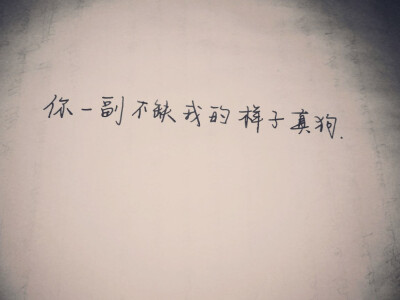 你一副不缺我的样子真狗.